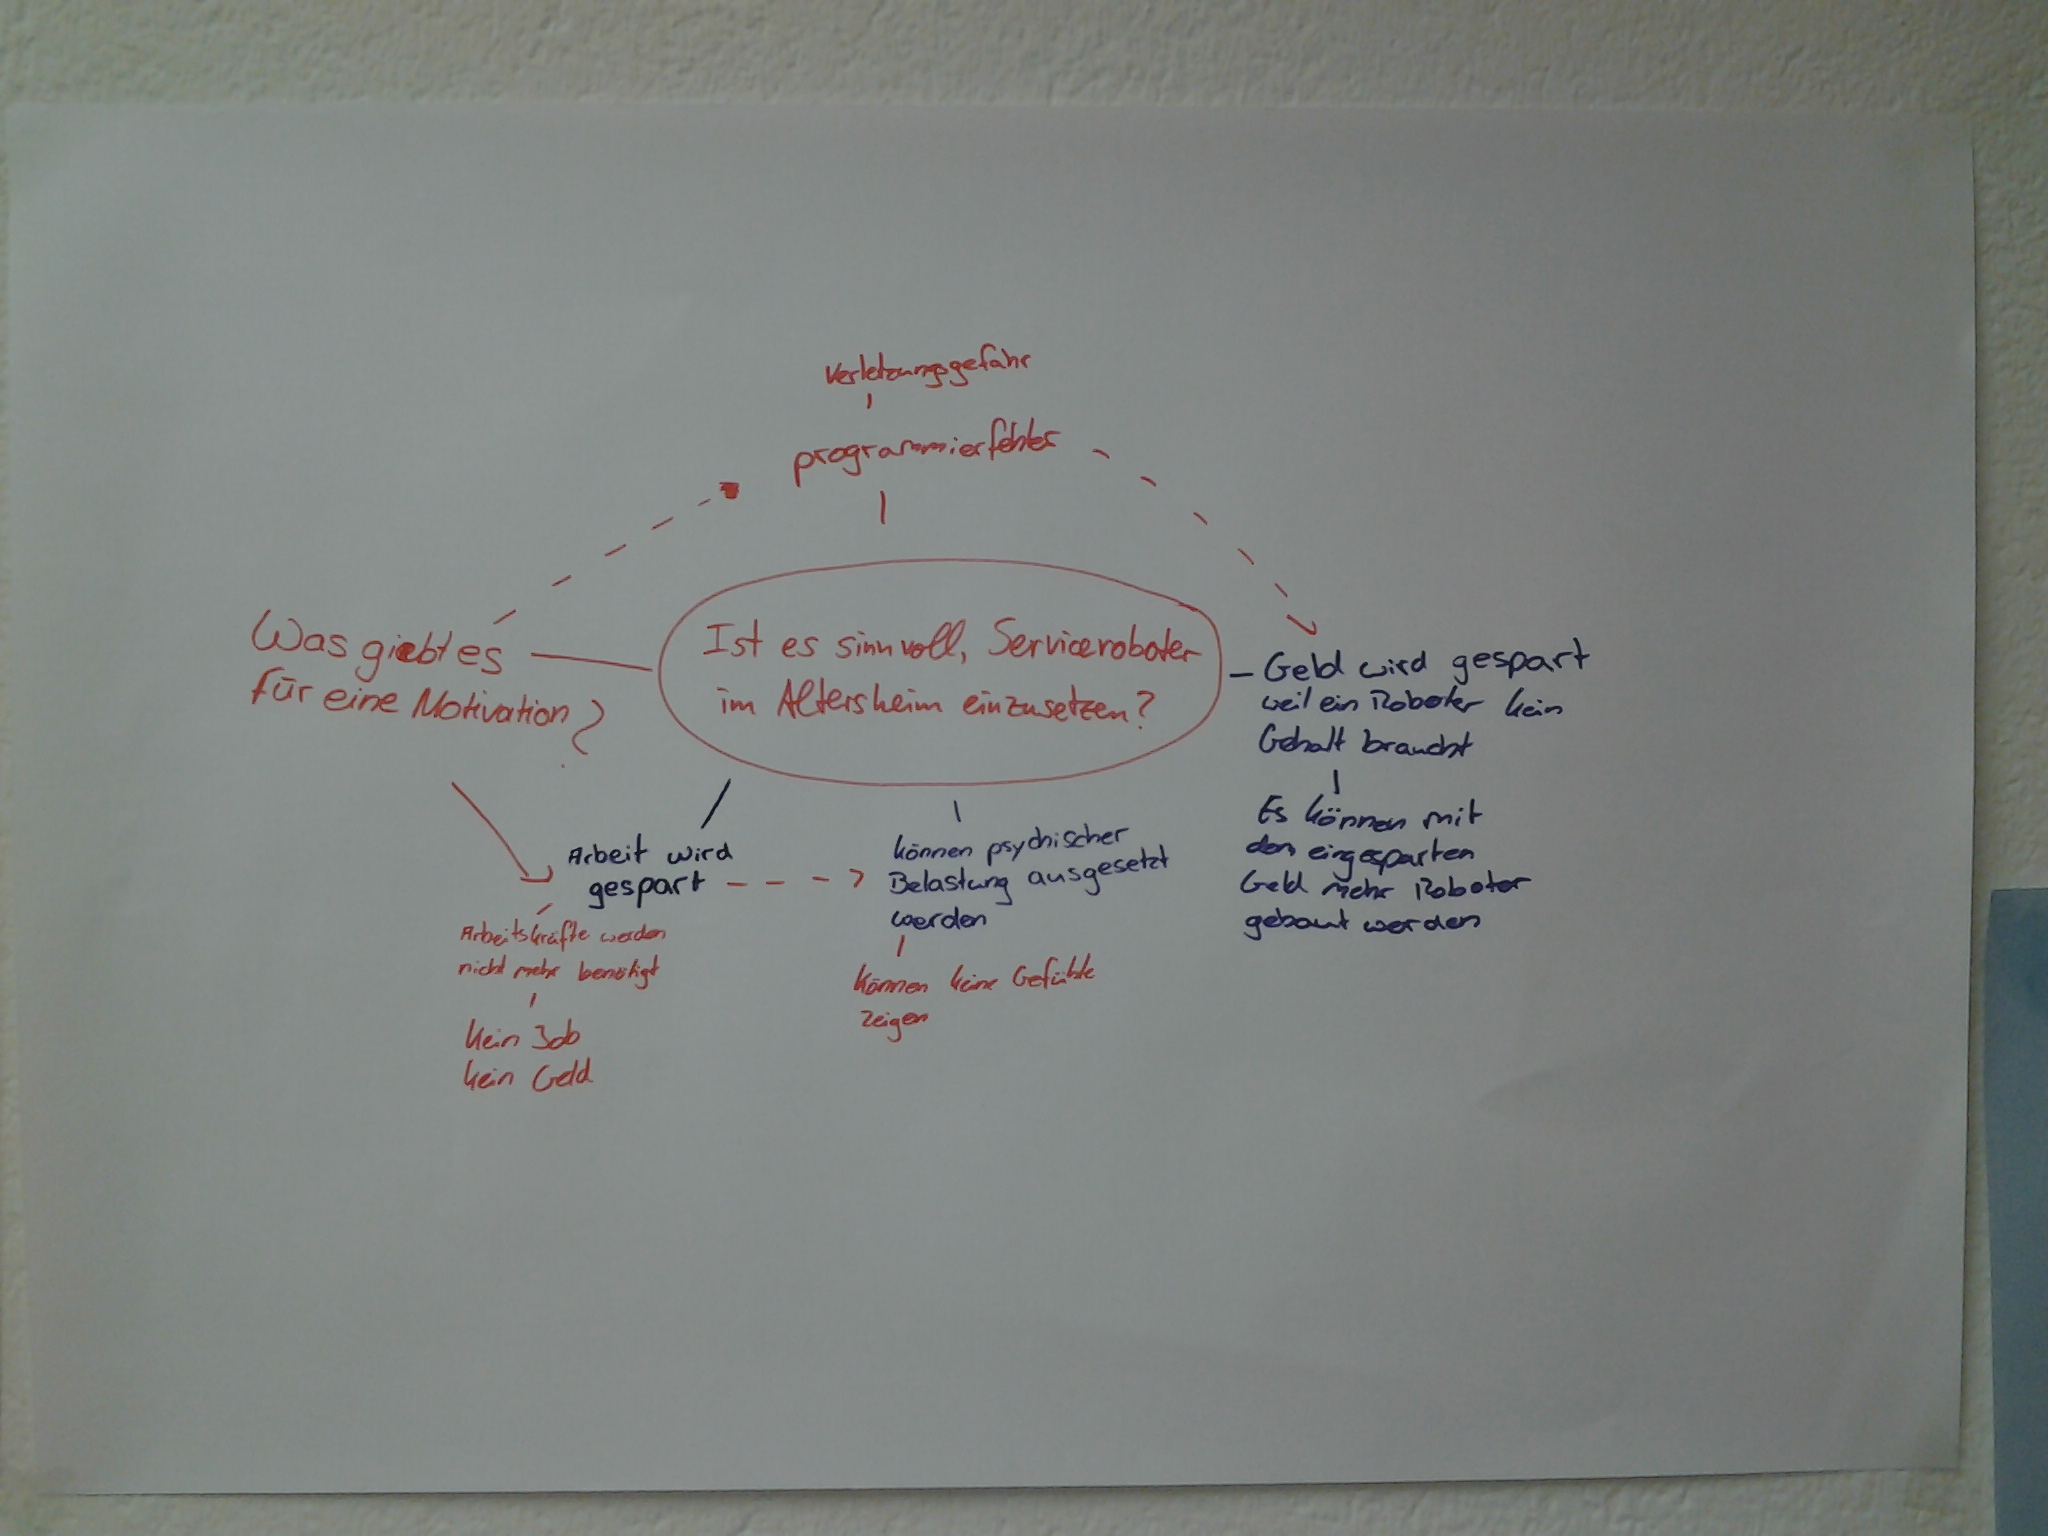 Verletzungsgefahr
programmierfehler
Was giebt es
für eine Motivation?
Ist es sinnvoll, Serviceroboter
im Altersheim einzusetzen?
Geld wird gespart
weil ein Roboter kein
Gehalt braucht
Es können mit
den eingesparten
Geld mehr Roboter
gebaut werden
Arbeit wird
gespart
Arbeitskräfte werden
nicht mehr benötigt
kein Job
kein Geld
können psychischer
Belastung ausgesetzt
werden
können keine Gefühle
zeigen